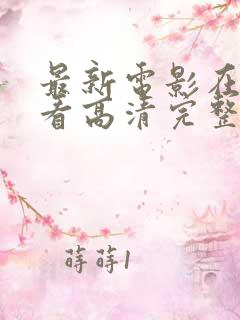 最新電影在
看高清完整
蒔蒔1